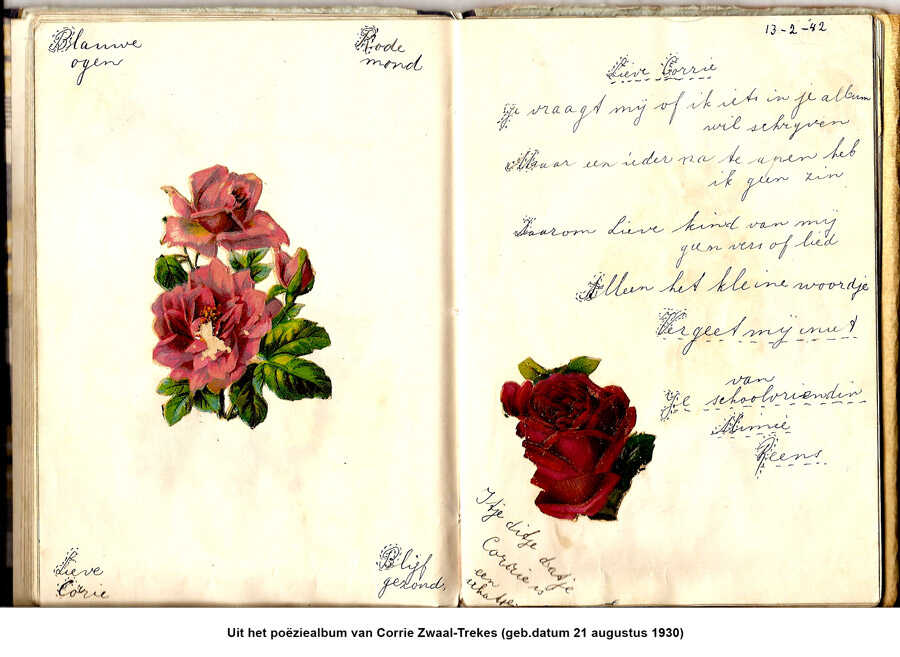 Blauwe
ogen
Rode
mond
Lieve
Corie
Blijf
gezond.
13-2-'42
Lieve Corrie
Je vraagt mij of ik iets in je album
wil schrijven
Maar een ieder na te apen heb
ik geen zin
Daarom Lieve kind van mij
geen vers of lied
Alleen het kleine woordje
Vergeet mij niet
van
Je schoolvriendin
Mimie
Reens
Itje ditje datje
Corrie is
een
schatje
Uit het poëziealbum van Corrie Zwaal-Trekes (geb.datum 21 augustus 1930)